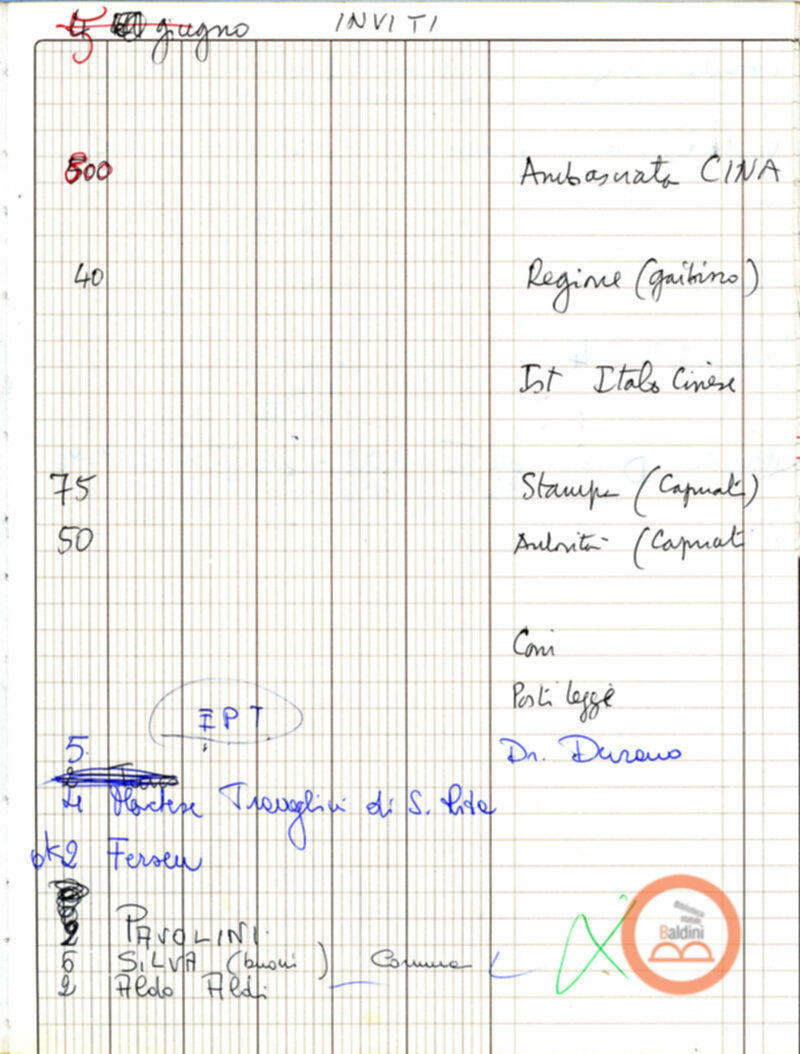 giugno INVITI
500 Ambasciata CINA
40 Regione (gaibisso)
Ist Italo Cinese
75 Stampa (Capuati)
50 Autorità (Capuati
Coni
Posti legge
EPT
5 Dr. Durano
4 Marchese Travaglini di S. Rita
ok 2 Fersen
2 PAVOLINI
5 SILVA (buoni) Comune
2 Aldo Aldi
Biblioteca
statale
Baldini